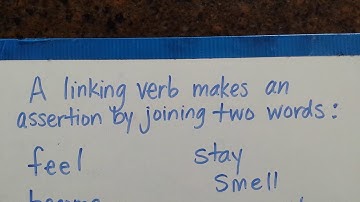 A linking verb makes an
assertion by joining two words:
feel stay
smell